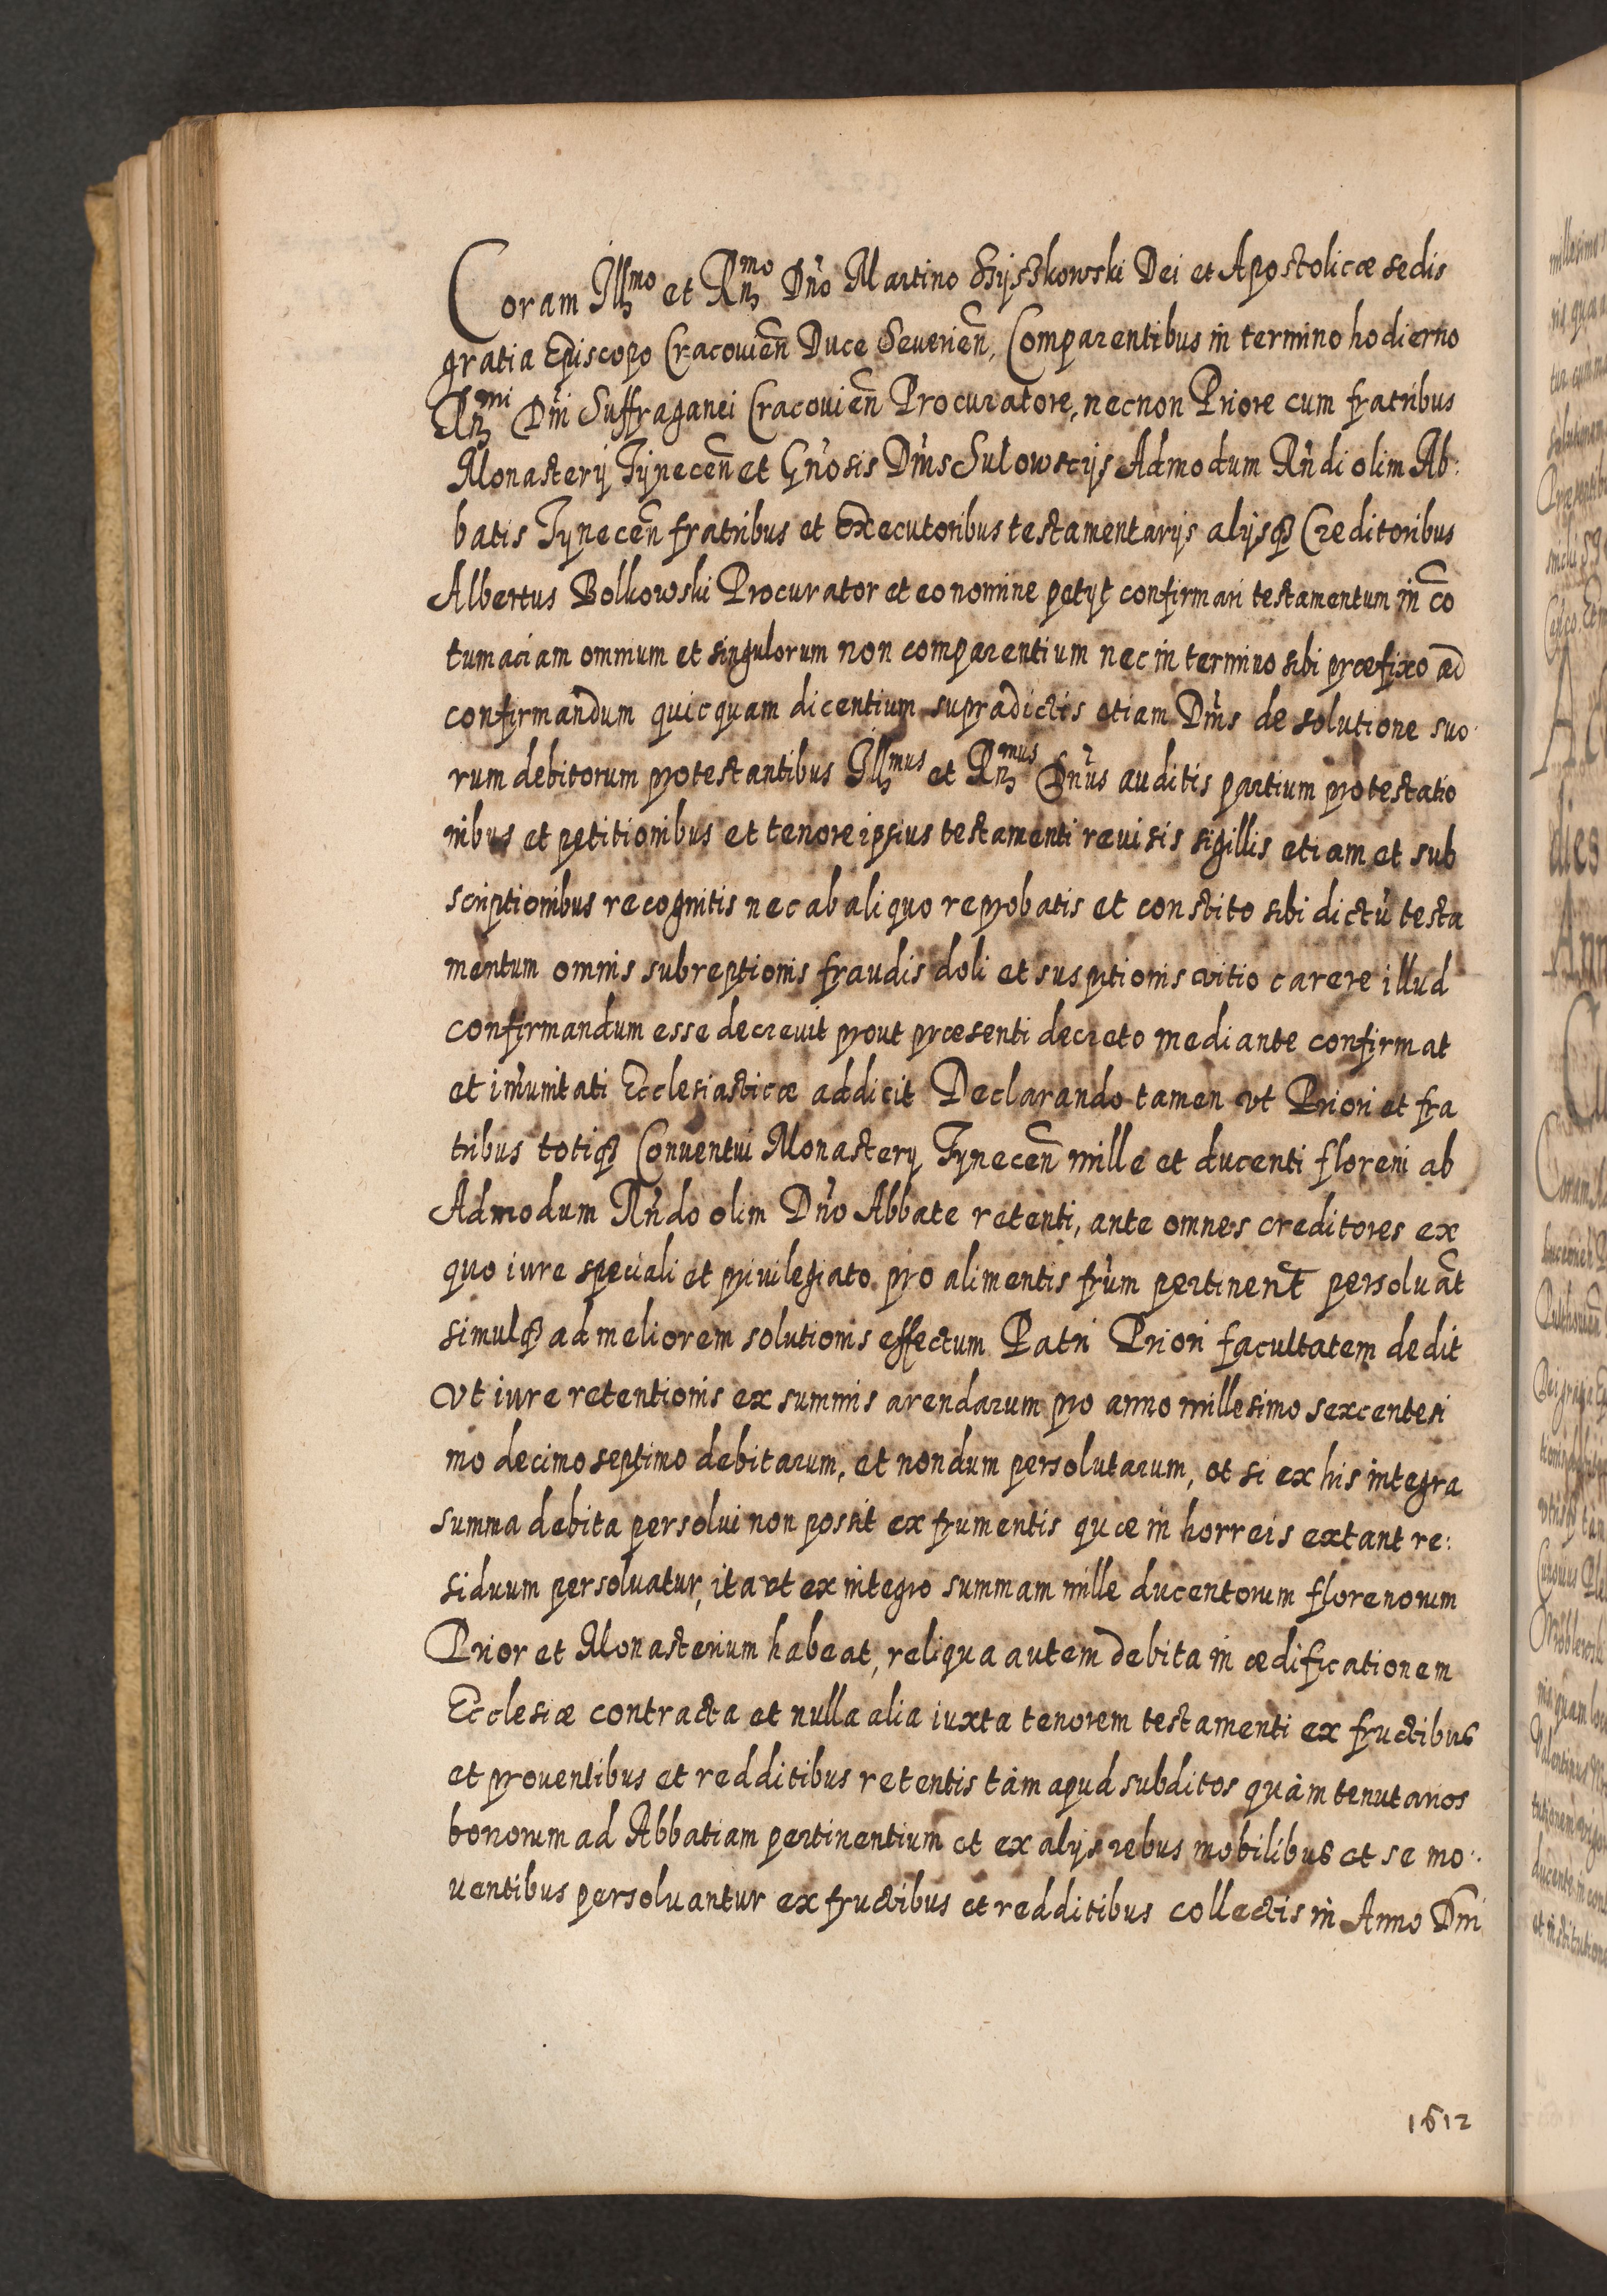 Coram Illmo et Rndmo Dno Martino Szyszkowski Dei et Apostolicæ sedis
gratia Episcopo Cracouien Duce Seuerien, Comparentibus in termino hodierno
Rndmi Dni Suffraganei Cracouien Procuratore, necnon Priore cum fratribus
Monasterij Tÿnecen et Gnosis Dnis Sulowscijs Admodum Rndi olim Ab:
batis Tynecen fratribus et Executoribus testamentarijs alijsq Creditoribus
Albertus Bolkowski Procurator et eo nomine petijt confirmari testamentum in cō
tumaciam omnium et singulorum non comparentium nec in termino sibi præfixo ad
confirmandum quicquam dicentium supradictis etiam Dnis de solutione suo:
rum debitorum protestantibus Illmus et Rndmus Dnus auditis partium protestatio
nibus et petitionibus et tenore ipsius testamenti reuisis sigillis etiam et sub
scriptionibus recognitis nec ab aliquo reprobatis et constito sibi dictū testa
mentum omnis subreptionis fraudis doli et suspitionis vitio carere illud
confirmandum esse decreuit prout præsenti decreto mediante confirmat
et imunitati Ecclesiasticæ addicit Declarando tamen vt Priori et fra
tribus totiq Conuentui Monastery Tynecen mille et ducenti floreni ab
Admodum Rndo olim Dno Abbate retenti, ante omnes creditores ex
quo iure speciali et priuilegiato pro alimentis frum pertinent persoluāt
simulq ad meliorem solutionis effectum Patri Priori facultatem dedit
vt iure retentionis ex summis arendarum pro anno millesimo sexcentesi
mo decimo septimo debitarum, et nondum persolutarum, et si ex his integra
summa debita persolui non possit ex frumentis quæ in horreis extant re:
siduum persoluatur, ita vt ex integro summam mille ducentorum florenorum
Prior et Monasterium habeat, reliqua autem debita in ædificationem
Ecclesiæ contracta et nulla alia iuxta tenorem testamenti ex fructibus
et prouentibus et redditibus retentis tàm apud subditos quàm tenutarios
bonorum ad Abbatiam pertinentium et ex alijs rebus mobilibus et se mo:
uentibus persoluantur ex fructibus et redditibus collectis in Anno Dni
1612